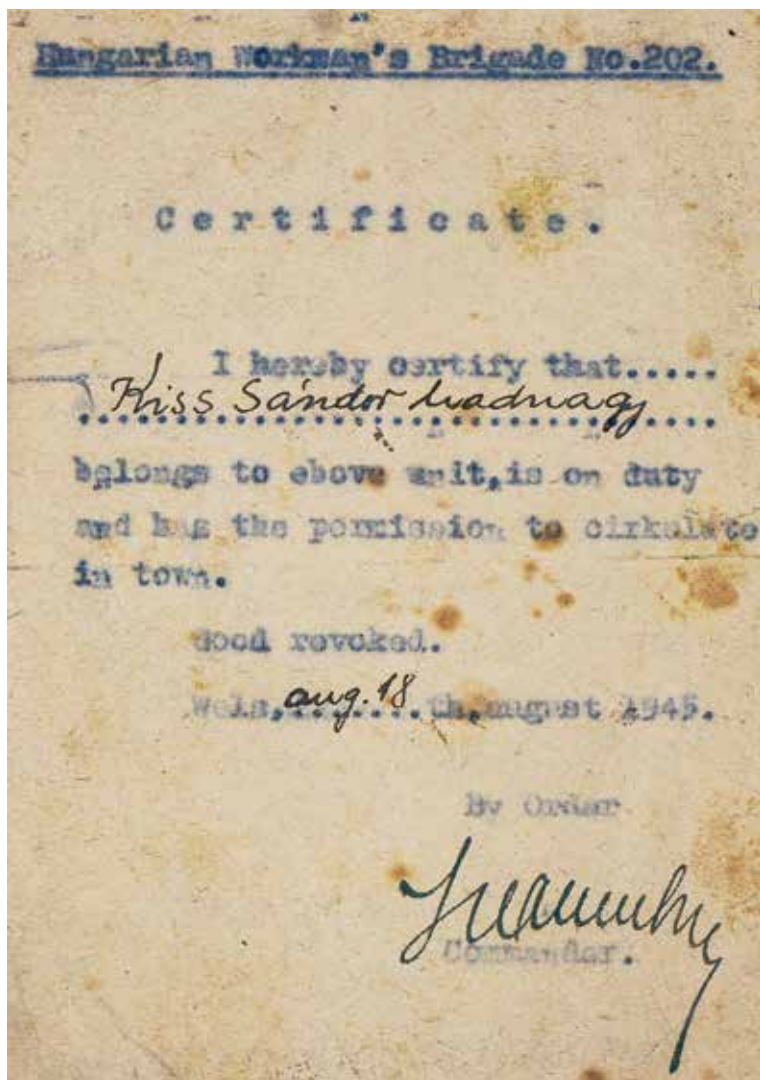 Hungarian Workman's Brigade No.202.
Certificate.
I hereby certify that.....
Kiss Sándor hadnagy
belongs to above unit, is on duty
and has the permission to cirkulate
in town.
Good revoked.
Wels, aug. 18 th, august 1945.
By Order
Commander.